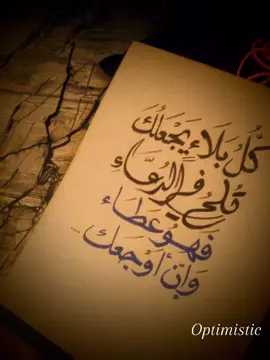 كُلُّ بَلَاءٍ يَجْعَلُكَ
تُلِحُّ فِي الدُّعَاءِ
فَهُوَ عَطَاءٌ
وَإِنْ أَوْجَعَكَ ....
Optimistic